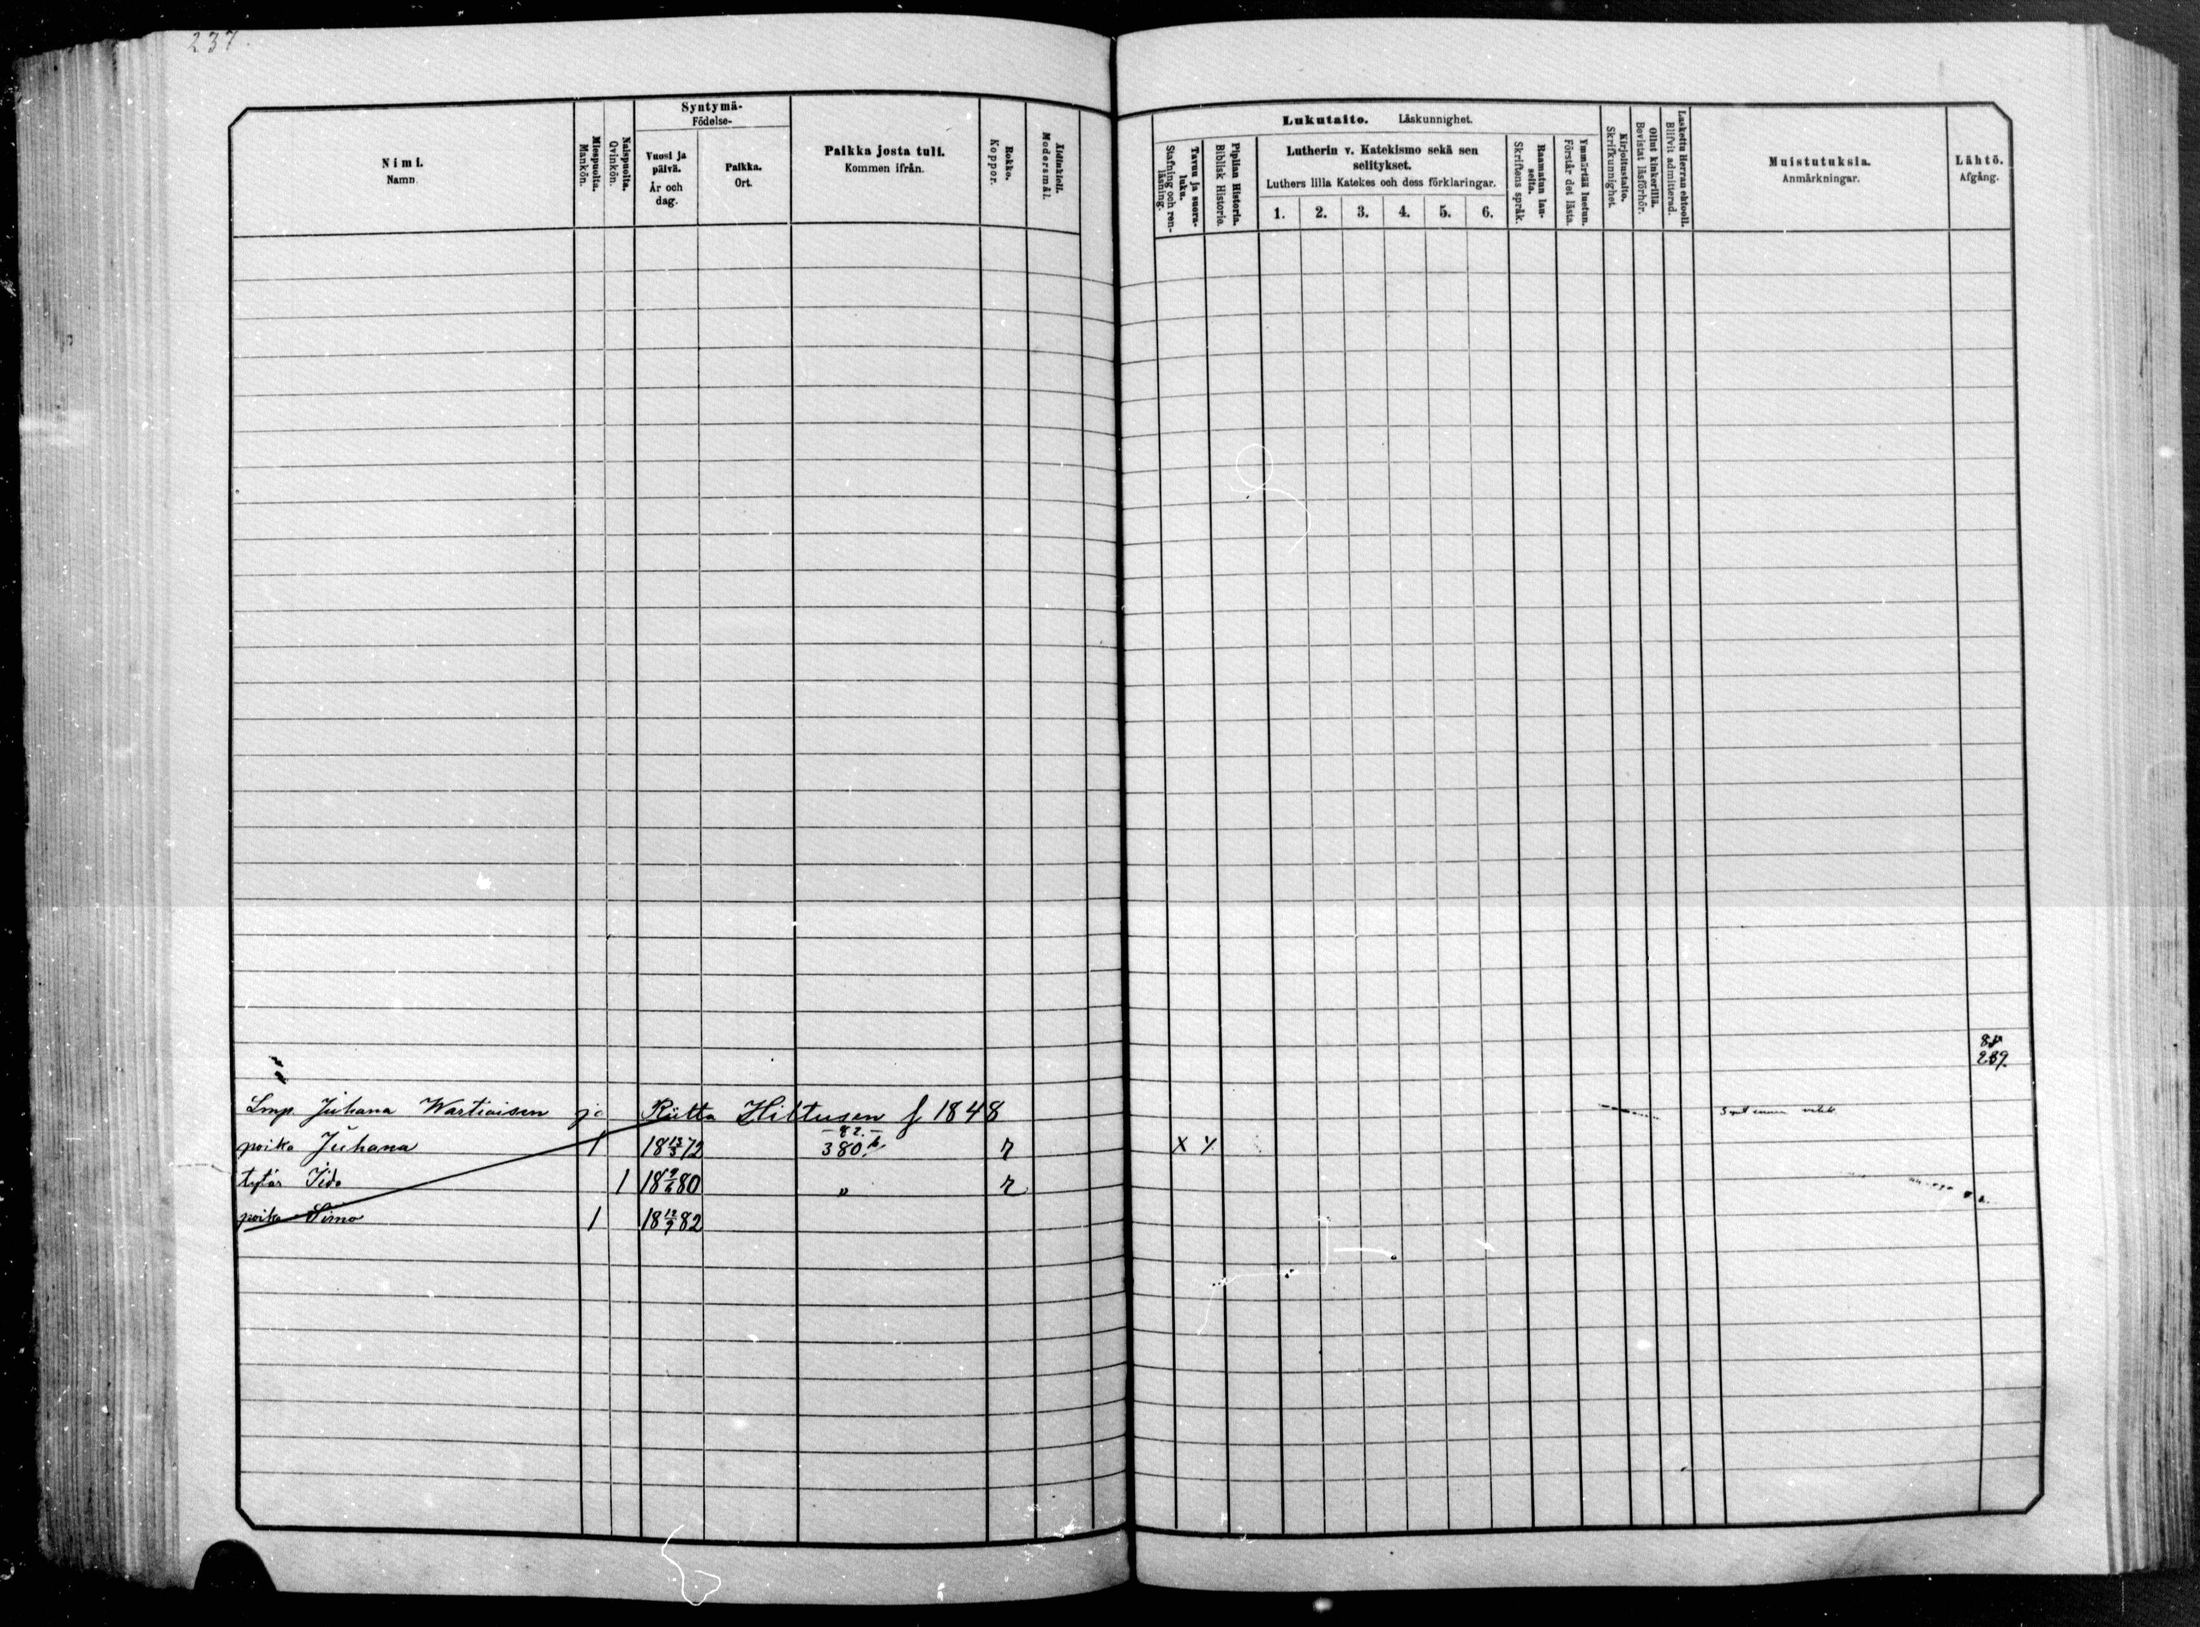 237.
Nimi.
Namn.
Miespuolta.
Mankön.
Naispuolta.
Qvinkön.
Syntymä-
Födelse-
Vuosi ja
päivä.
År och
dag.
Paikka.
Ort.
Paikka josta tuli.
Kommen ifrån.
Rokko.
Koppor.
Äidinkieli.
Modersmål.
Lukutaito. Läskunnighet.
Tavuu ja suora-
luku.
Stafning och ren-
läsning.
Piplian Historia.
Biblisk Historie
Lutherin v. Katekismo sekä sen
selitykset.
Luthers lilla Katekes och dess förklaringar.
1. 2. 3. 4. 5. 6.
Raamatun lau-
seita.
Skriftens språk.
Ymmärtää luetun.
Förstår det lästa.
Kirjoitustaito.
Skrifkunnighet.
Ollut kinkerillä.
Bevistat läsförhör.
Laskettu Herran ehtooll.
Blifvit admitterad.
Muistutuksia.
Anmärkningar.
Lähtö.
Afgång.
239.
Lmp. Juhana Wartiaisen ja Riitta Hiltusen f 1848
poika Juhana 1 18 13/3 72 380 r X
tytär Iida 1 18 80 " r
poika Simo 1 18 12/9 82